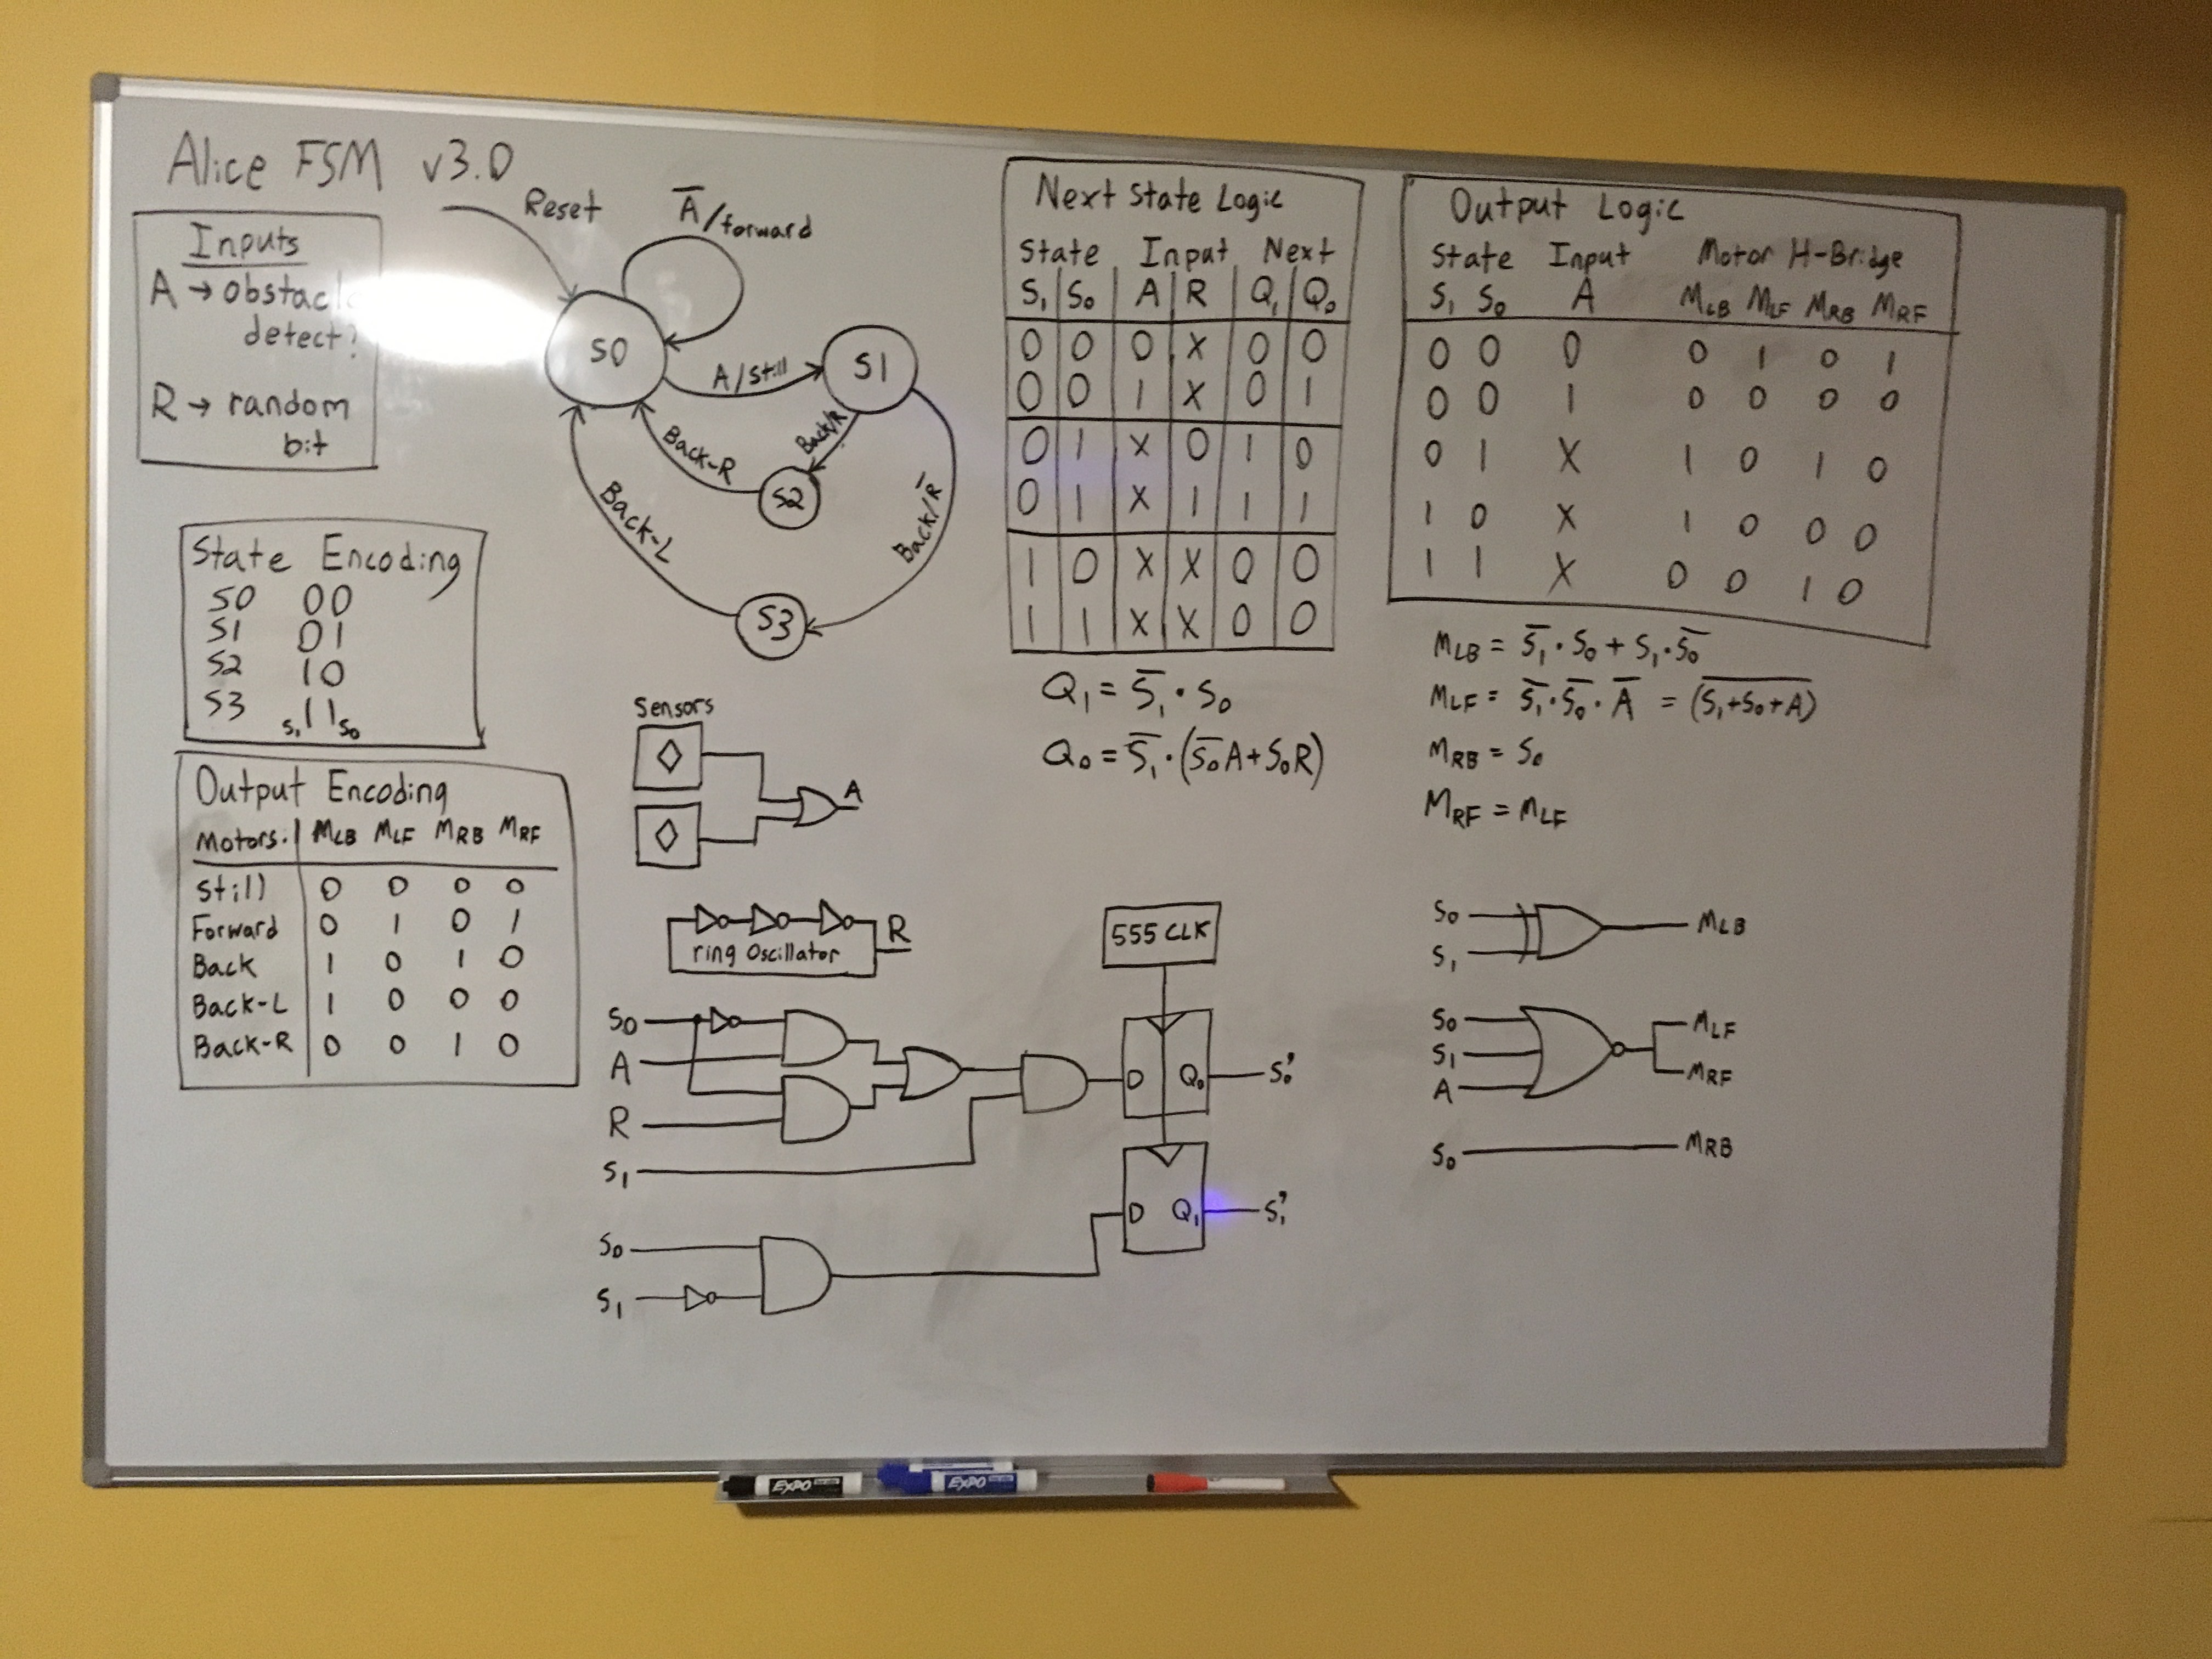 Alice FSM v3.0
Inputs
A → obstacle
detect?
R → random
bit
Reset
A̅/forward
S0
A/Still
S1
Back/R
S2
Back-R
Back/R̅
Back-L
S3
State Encoding
S0 00
S1 01
S2 10
S3 11
S₁ S₀
Output Encoding
Motors: M_LB M_LF M_RB M_RF
Still 0 0 0 0
Forward 0 1 0 1
Back 1 0 1 0
Back-L 1 0 0 0
Back-R 0 0 1 0
Next State Logic
State Input Next
S₁ S₀ A R Q₁ Q₀
0 0 0 X 0 0
0 0 1 X 0 1
0 1 X 0 1 0
0 1 X 1 1 1
1 0 X X 0 0
1 1 X X 0 0
Q₁ = S̅₁ · S₀
Q₀ = S̅₁ · (S̅₀A + S₀R)
Output Logic
State Input Motor H-Bridge
S₁ S₀ A M_LB M_LF M_RB M_RF
0 0 0 0 1 0 1
0 0 1 0 0 0 0
0 1 X 1 0 1 0
1 0 X 1 0 0 0
1 1 X 0 0 1 0
M_LB = S̅₁ · S₀ + S₁ · S̅₀
M_LF = S̅₁ · S̅₀ · A̅ = (S₁+S₀+A)̅
M_RB = S₀
M_RF = M_LF
Sensors
A
ring Oscillator
R
555 CLK
S₀
A
R
S₁
D Q₀ S₀'
S₀
S₁
D Q₁ S₁'
S₀
S₁
M_LB
S₀
S₁
A
M_LF
M_RF
S₀ M_RB
EXPO
EXPO